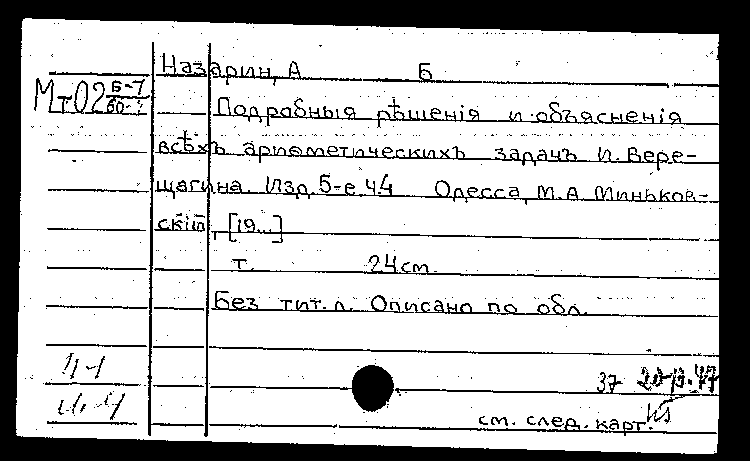 Назарин, А Б
Мт02 Б-7
Подробныя рѣшенія и объясненія
всѣхъ ариөметическихъ задачъ И. Вере-
щагина. Изд. 5-е ч.4 Одесса, М.А. Миньков-
скій, [19...]
т. 24 см.
Без тит. л. Описано по обл.
ч.1
ч.4
37
см. след. карт.